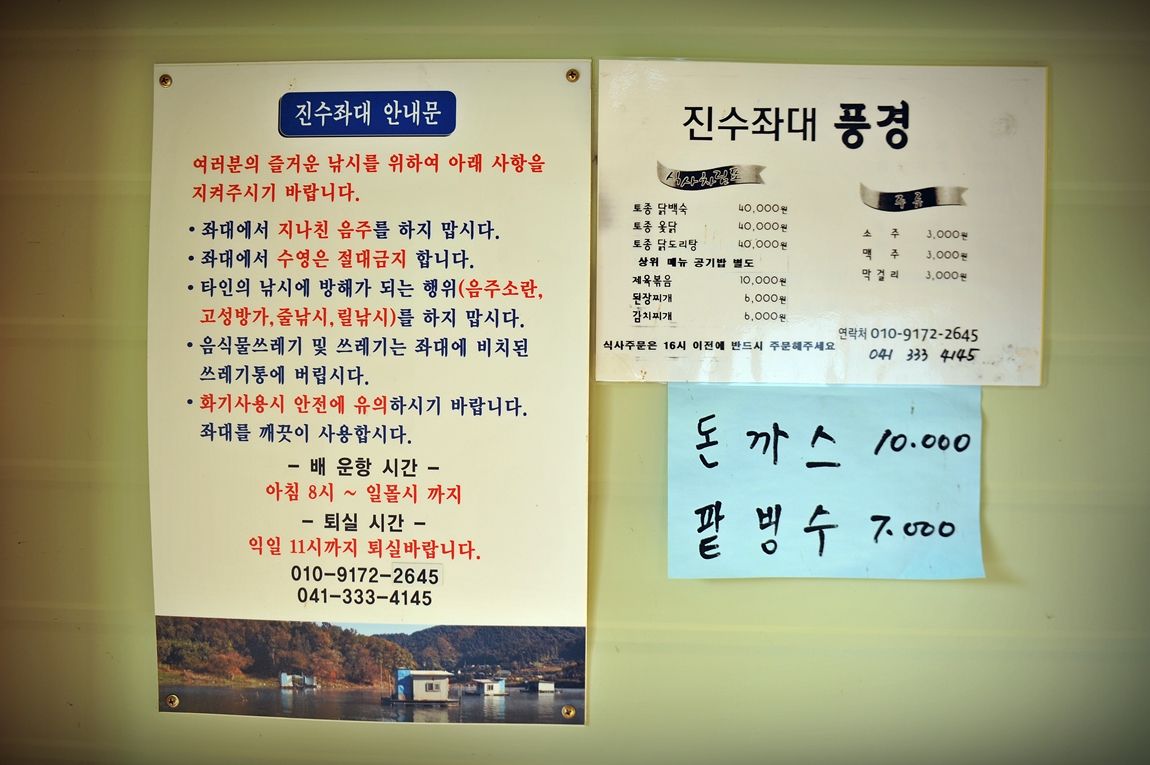 진수좌대 안내문
여러분의 즐거운 낚시를 위하여 아래 사항을
지켜주시기 바랍니다.
• 좌대에서 지나친 음주를 하지 맙시다.
• 좌대에서 수영은 절대금지 합니다.
• 타인의 낚시에 방해가 되는 행위(음주소란,
고성방가,줄낚시,릴낚시)를 하지 맙시다.
• 음식물쓰레기 및 쓰레기는 좌대에 비치된
쓰레기통에 버립시다.
• 화기사용시 안전에 유의하시기 바랍니다.
좌대를 깨끗이 사용합시다.
– 배 운항 시간 –
아침 8시 ~ 일몰시 까지
– 퇴실 시간 –
익일 11시까지 퇴실바랍니다.
010-9172-2645
041-333-4145
진수좌대 풍경
식사차림표
토종 닭백숙 40,000원
토종 옻닭 40,000원
토종 닭도리탕 40,000원
상위 메뉴 공기밥 별도
제육볶음 10,000원
된장찌개 6,000원
김치찌개 6,000원
식사주문은 16시 이전에 반드시 주문해주세요
주류
소 주 3,000원
맥 주 3,000원
막걸리 3,000원
연락처 010-9172-2645
041 333 4145
돈까스 10.000
팥빙수 7.000